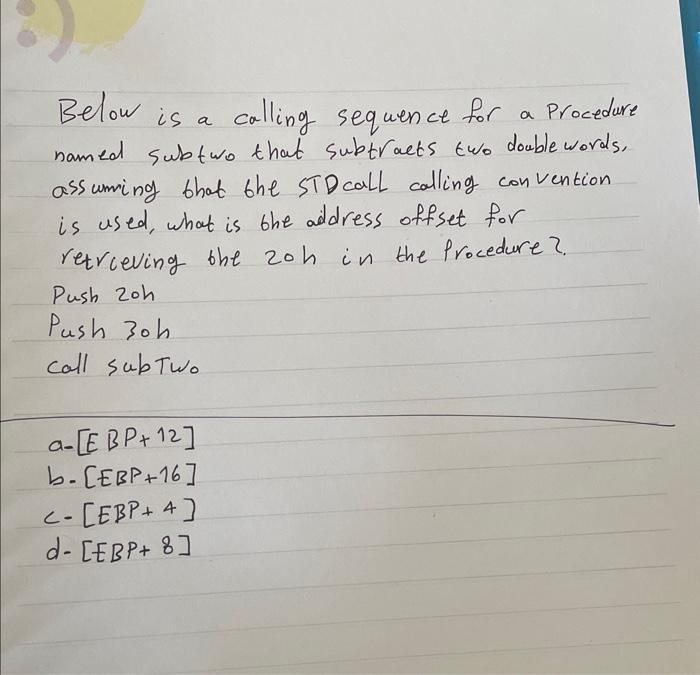 Below is a calling sequence for a Procedure
named subtwo that subtracts two double words,
assuming that the STDcall calling convention
is used, what is the address offset for
retrieving the 20h in the Procedure?
Push 20h
Push 30h
call subTwo
a-[EBP+12]
b-[EBP+16]
c-[EBP+4]
d-[EBP+8]